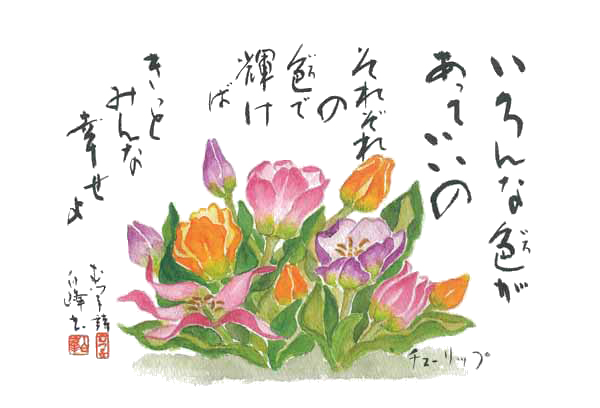 いろんな色が
いろ
あっていいの
それぞれ
の
色で
いろ
輝け
ば
きっと
みんな
幸せよ
チューリップ